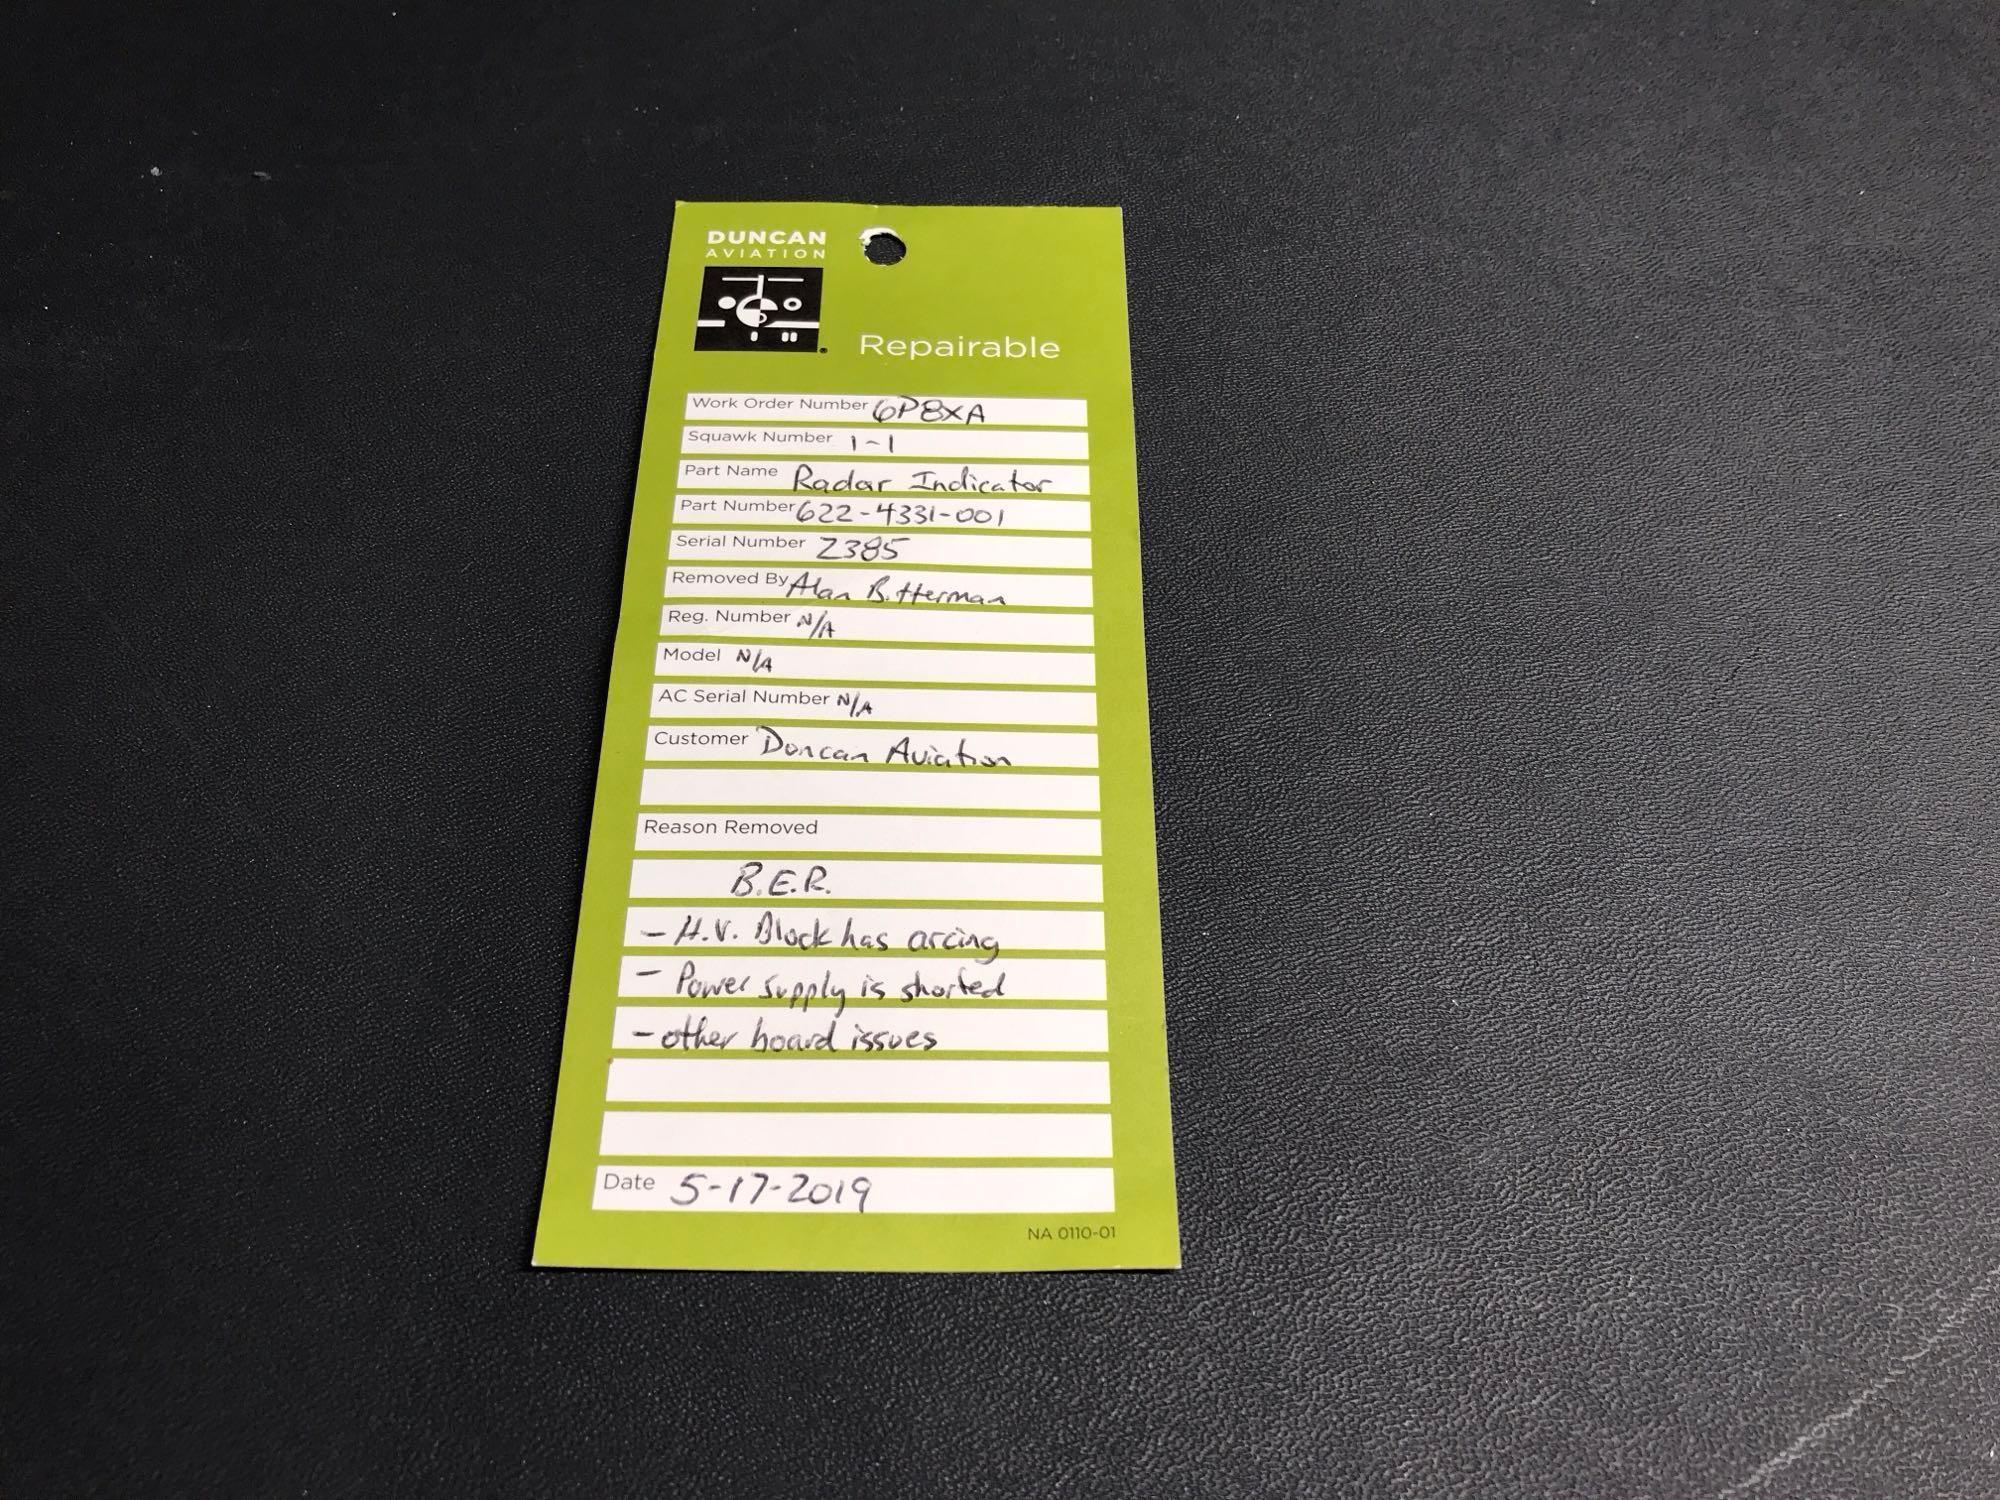 DUNCAN
AVIATION
Repairable
Work Order Number 6P8XA
Squawk Number 1-1
Part Name Radar Indicator
Part Number 622-4331-001
Serial Number 2385
Removed By Alan Bitterman
Reg. Number N/A
Model N/A
AC Serial Number N/A
Customer Duncan Aviation
Reason Removed
B.E.R.
- H.V. Block has arcing
- Power supply is shorted
- other board issues
Date 5-17-2019
NA 0110-01